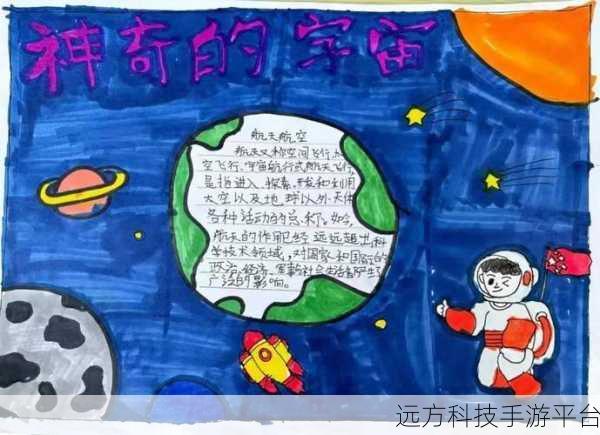 神奇的宇宙
航天航空
航天又称空间飞行,太
空飞行、宇宙航行或航天飞行,
是指进入、探索、开发和利用
太空以及地球以外天体
各种活动的总称。如今,
航天的作用已经远远超出科
学技术领域,对国家和国际的
政治、经济、军事和社会生活都产生了
广泛的影响。
远方科技手游平台